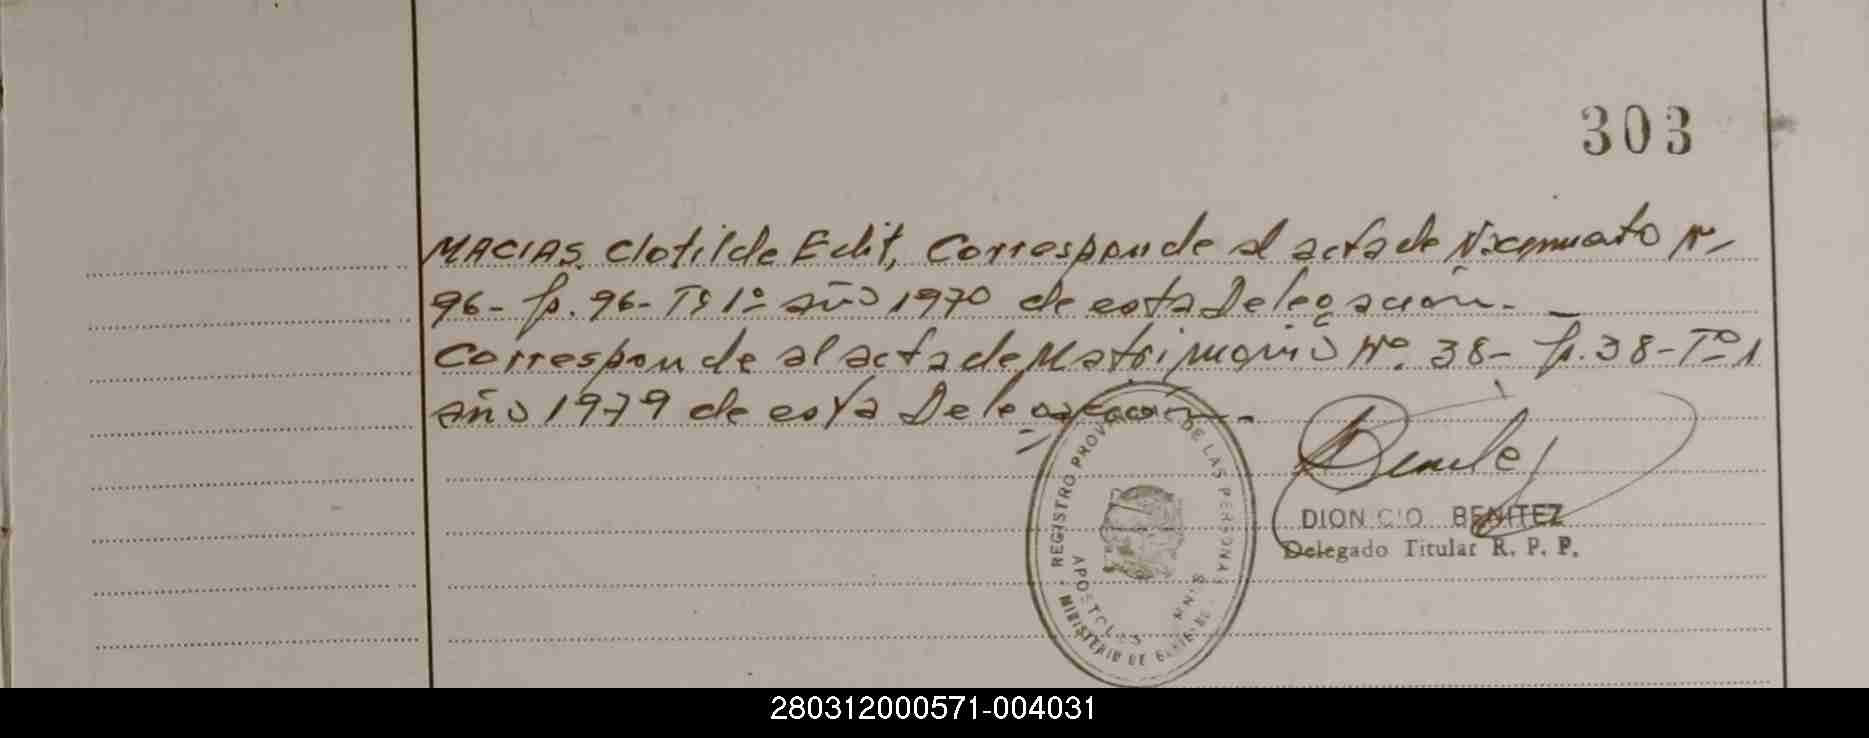 303
MACIAS, Clotilde Edit, Corresponde al acta de Nacimiento Nº
96- fº. 96- Tº 1º año 1970 de esta Delegación.-
Corresponde al acta de Matrimonio Nº. 38- fº. 38- Tº 1
año 1979 de esta Delegación.-
REGISTRO PROVINCIAL DE LAS PERSONAS
APOSTOLES
MNES
MINISTERIO DE GOBIERNO
Benitez
DIONICIO BENITEZ
Delegado Titular R. P. P.
280312000571-004031